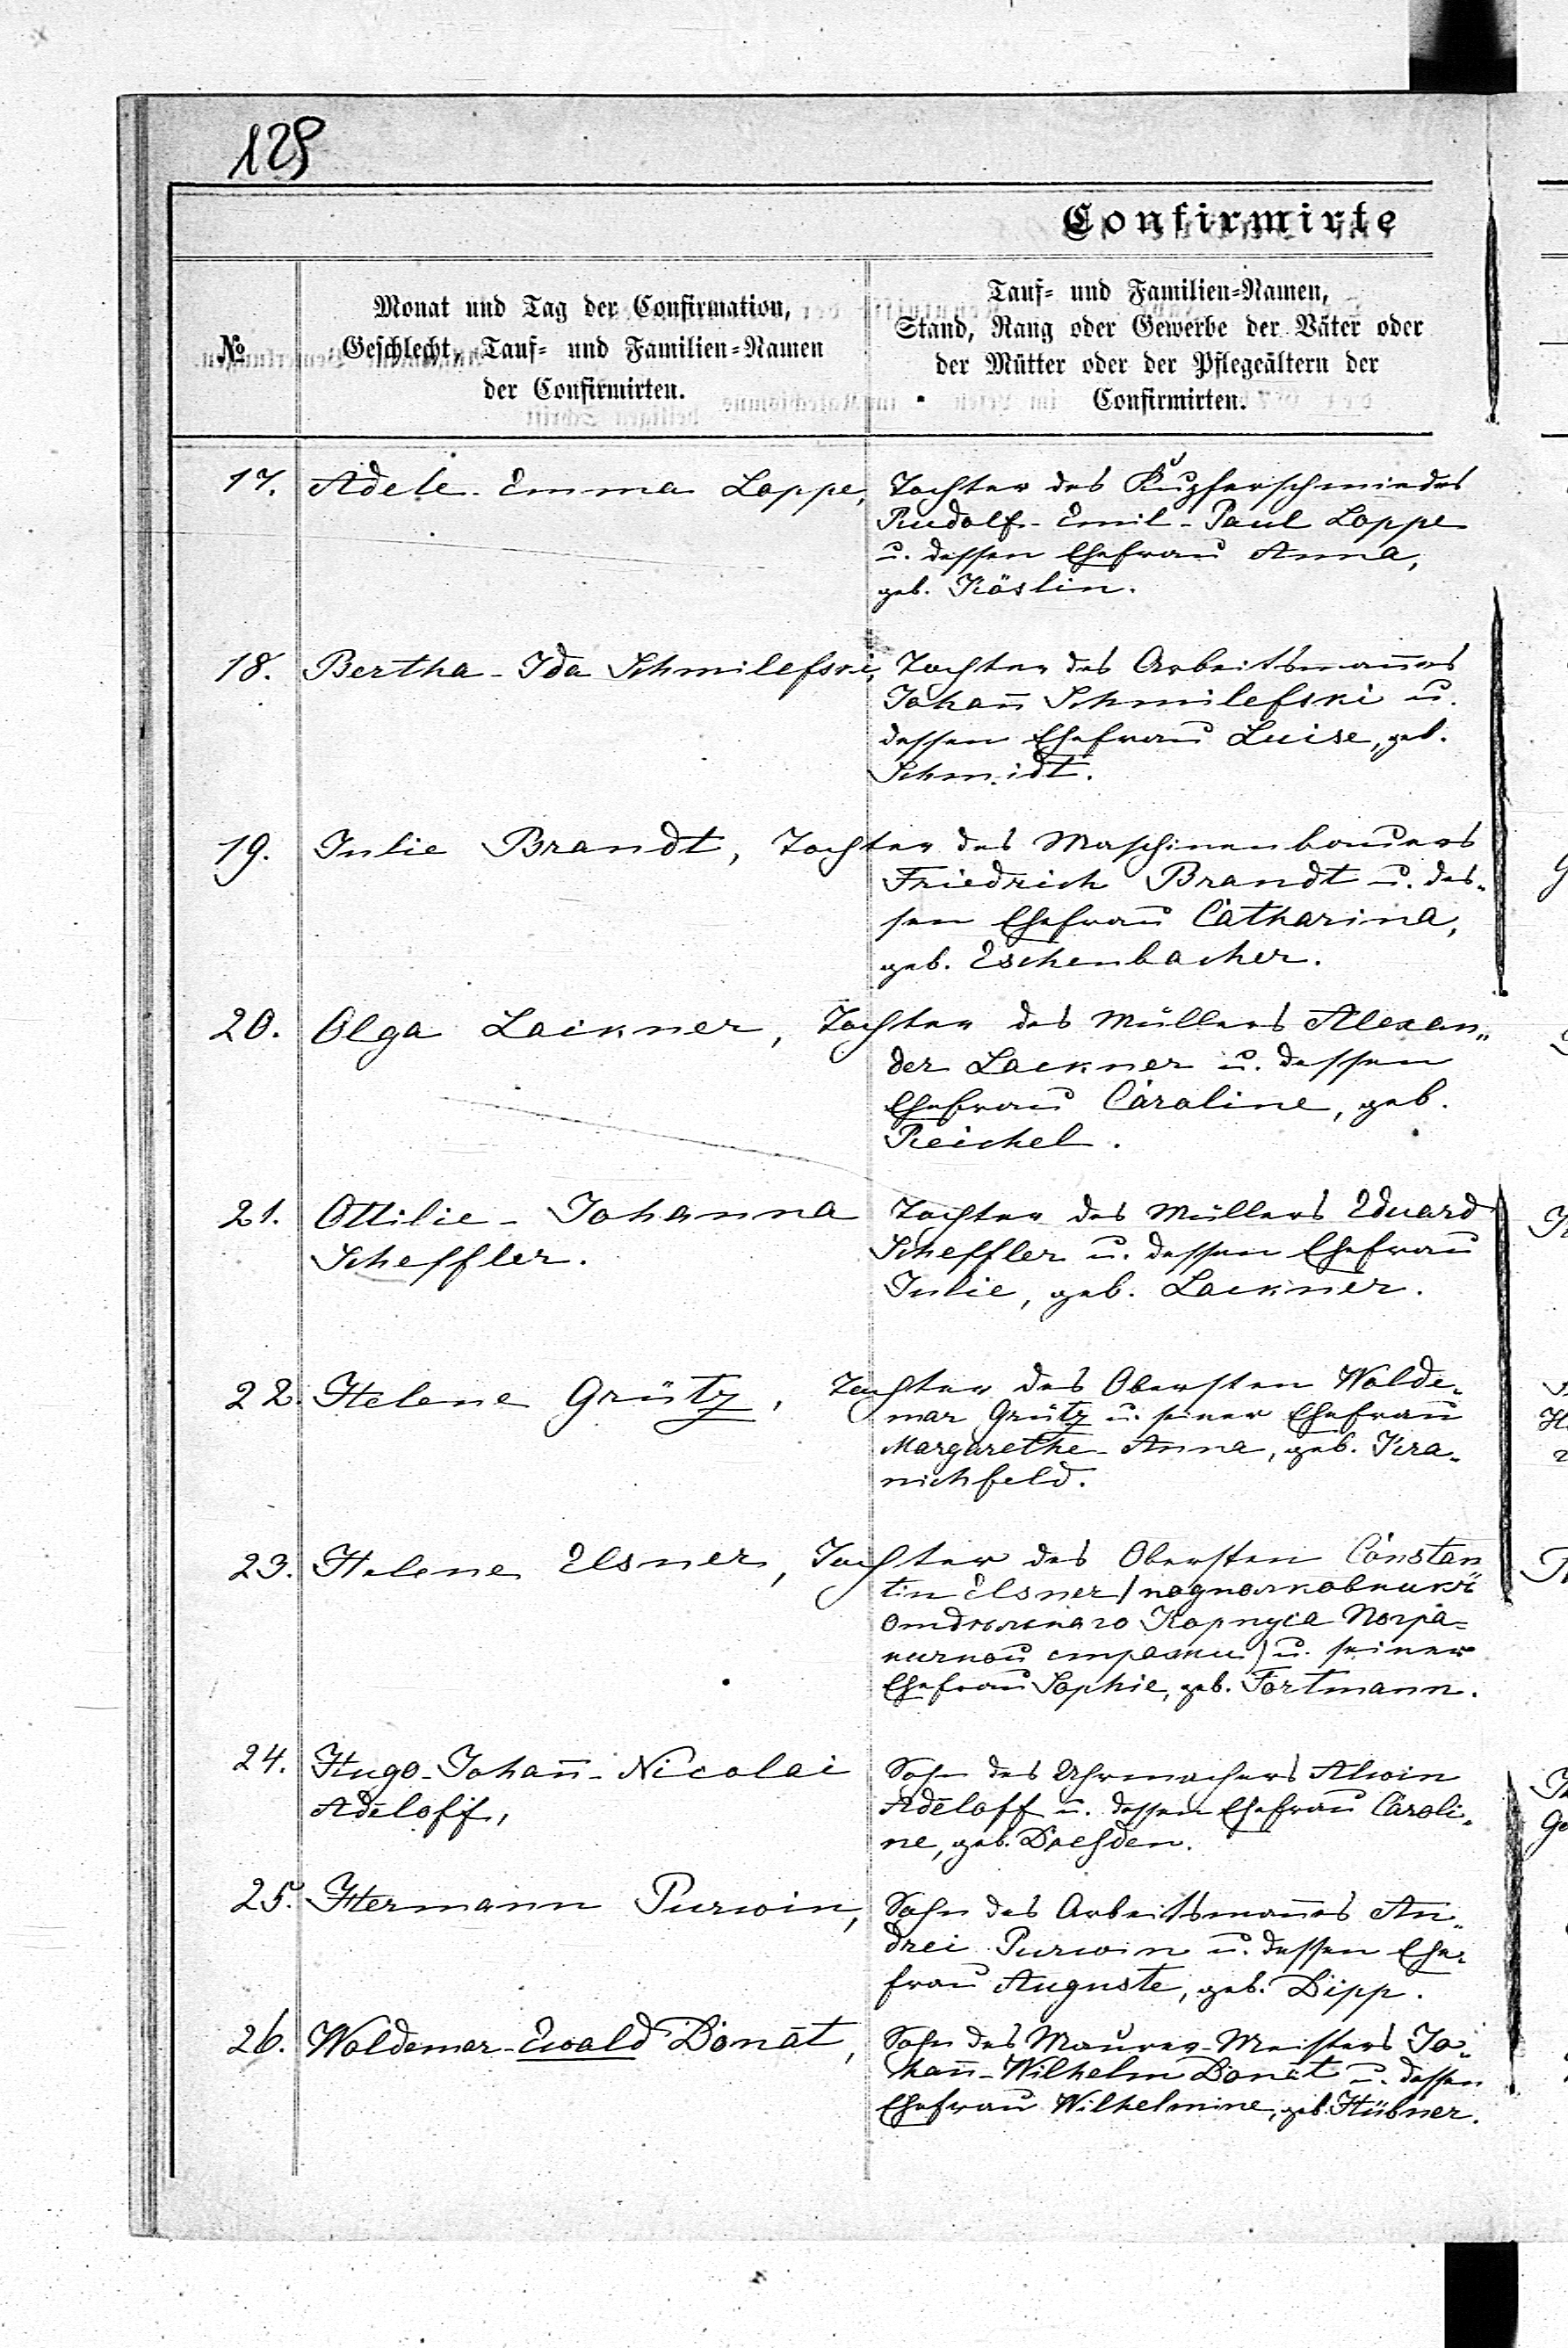 129
Confirmirte
№
Monat und Tag der Confirmation,
Geschlecht, Tauf= und Familien=Namen
der Confirmirten.
Tauf= und Familien=Namen,
Stand, Rang oder Gewerbe der Väter oder
der Mütter oder der Pflegeältern der
Confirmirten.
17. Adele-Emma Loppe, Tochter des Kupferschmiedes
Rudolf-Emil-Paul Loppe
u. dessen Ehefrau Anna,
geb. Köslin.
18. Bertha-Ida Schmilefski, Tochter des Arbeitsman̅es
Johan̅ Schmilefski u.
dessen Ehefrau Luise, geb.
Schmidt.
19. Julie Brandt, Tochter des Maschinenbauers
Friedrich Brandt u. des-
sen Ehefrau Catharina,
geb. Eschenbacher.
20. Olga Lackner, Tochter des Müllers Alexan-
der Lackner u. dessen
Ehefrau Caroline, geb.
Reichel.
21. Ottilie-Johanna Tochter des Müllers Eduard
Scheffler. Scheffler u. dessen Ehefrau
Julie, geb. Lackner.
22. Helene Grütz, Tochter des Obersten Wolde-
mar Grütz u. seiner Ehefrau
Margarethe-Anna, geb. Kra-
nichfeld.
23. Helene Elsner, Tochter des Obersten Constan-
tin Elsner (подполковникъ
отдѣльнаго Корпуса Погра-
ничной стражи) u. seiner
Ehefrau Sophie, geb. Fortmann.
24. Hugo-Johan̅-Nicolai Sohn des Uhrmachers Alwin
Adeloff, Adeloff u. dessen Ehefrau Caroli-
ne, geb. Dresden.
25. Hermann Purwin, Sohn des Arbeitsman̅es An-
drei Purwin u. dessen Ehe-
frau Auguste, geb. Dipp.
26. Woldemar-Ewald Donat, Sohn des Maurer-Meisters Jo-
han̅-Wilhelm Donat u. dessen
Ehefrau Wilhelmine, geb. Hübner.